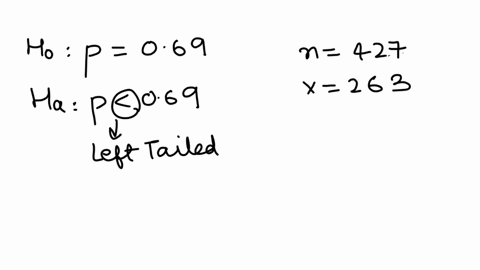 H₀: p = 0.69
Ha: p < 0.69
Left Tailed
n = 427
x = 263